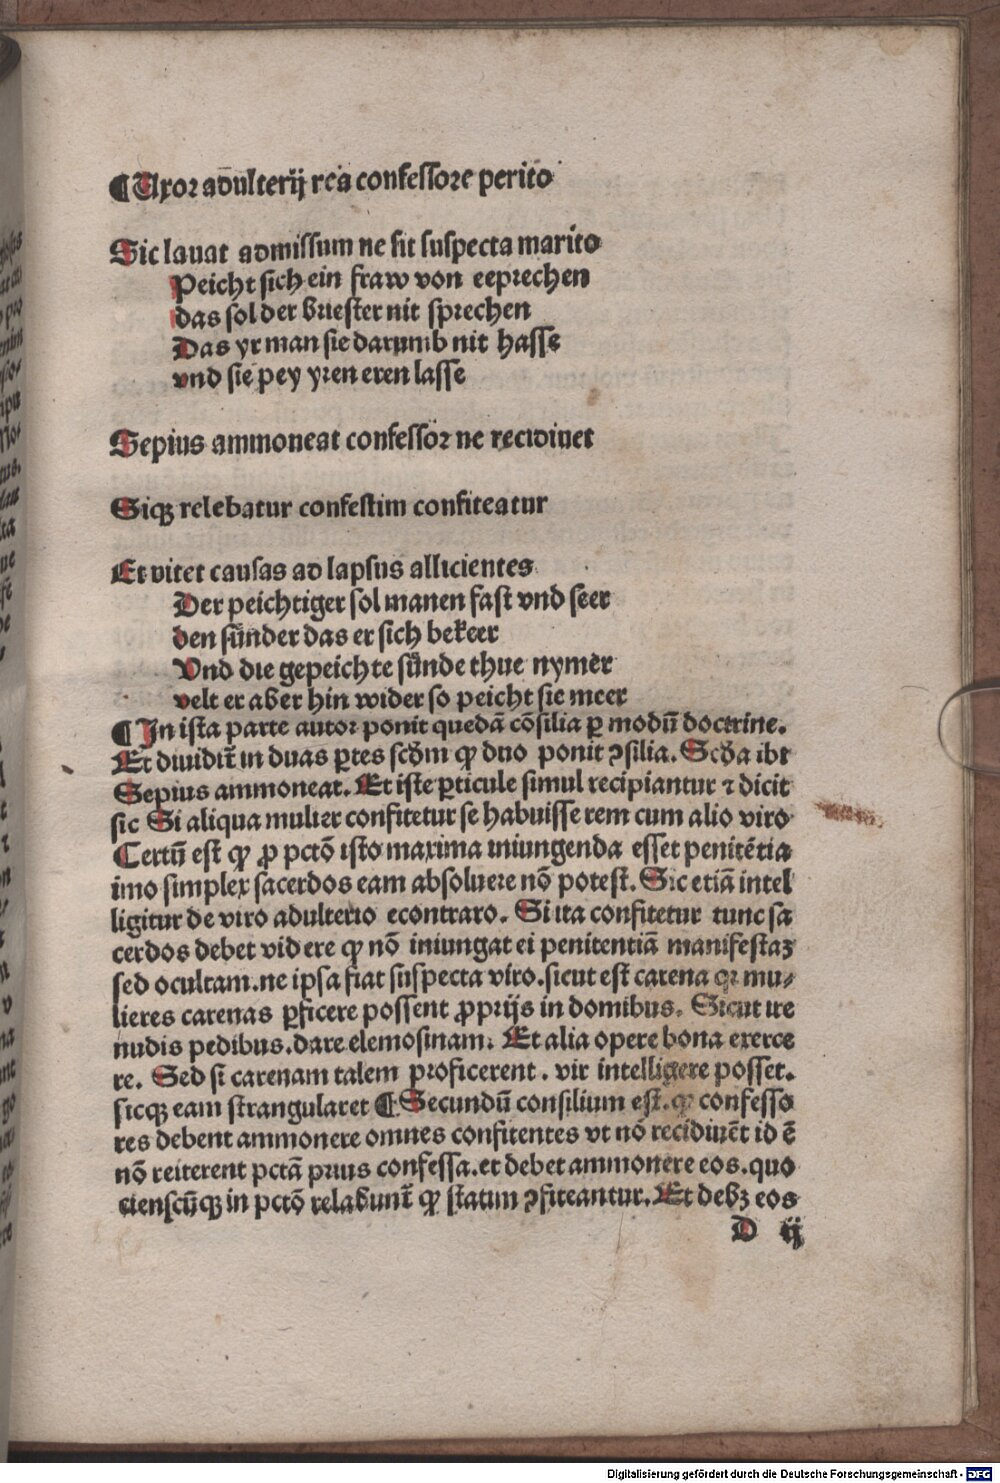 ¶ Uxor adulterij rea confessore perito
Sic lauat admissum ne sit suspecta marito
Peicht sich ein fraw von eeprechen
das sol der briester nit sprechen
Das yr man sie darumb nit hasse
vnd sie pey yren eren lasse
Sepius ammoneat confessor ne recidiuet
Siqꝫ relebatur confestim confiteatur
Et vitet causas ad lapsus allicientes
Der peichtiger sol manen fast vnd seer
den sünder das er sich bekeer
Vnd die gepeichte sünde thue nymer
velt er aber hin wider so peicht sie meer
¶ In ista parte autor ponit quedā cōsilia ꝑ modū doctrine.
Et diuidit̄ in duas ꝑtes scḋm ꝙ duo ponit ꝯsilia. Scḋa ibi
Sepius ammoneat. Et iste ꝑticule simul recipiantur ⁊ dicit
sic Si aliqua mulier confitetur se habuisse rem cum alio viro
Certū est ꝙ ꝓ pctō isto maxima iniungenda esset penitētia
imo simplex sacerdos eam absoluere nō potest. Sic etiā intel
ligitur de viro adulterio econtraro. Si ita confitetur tunc sa
cerdos debet videre ꝙ nō iniungat ei penitentiā manifestaꝫ
sed ocultam. ne ipsa fiat suspecta viro. sicut est carena qꝛ mu⸗
lieres carenas ꝑficere possent ꝓprijs in domibus. Sicut ire
nudis pedibus. dare elemosinam. Et alia opere bona exerce
re. Sed si carenam talem proficerent. vir intelligere posset.
sicqꝫ eam strangularet ¶ Secundū consilium est. ꝙ confesso
res debent ammonere omnes confitentes vt nō recidiuēt id ē
nō reiterent pctā prius confessa. et debet ammonere eos. quo
cienscūqꝫ in pctō relabunt̄ ꝙ statim ꝯfiteantur. Et debꝫ eos
D ij
Digitalisierung gefördert durch die Deutsche Forschungsgemeinschaft - DFG